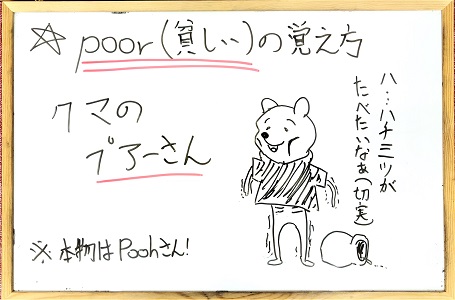 ☆ poor(貧しい)の覚え方
クマの
プアーさん
ハ…ハチミツが
たべたいなぁ(切実)
※本物はPoohさん!